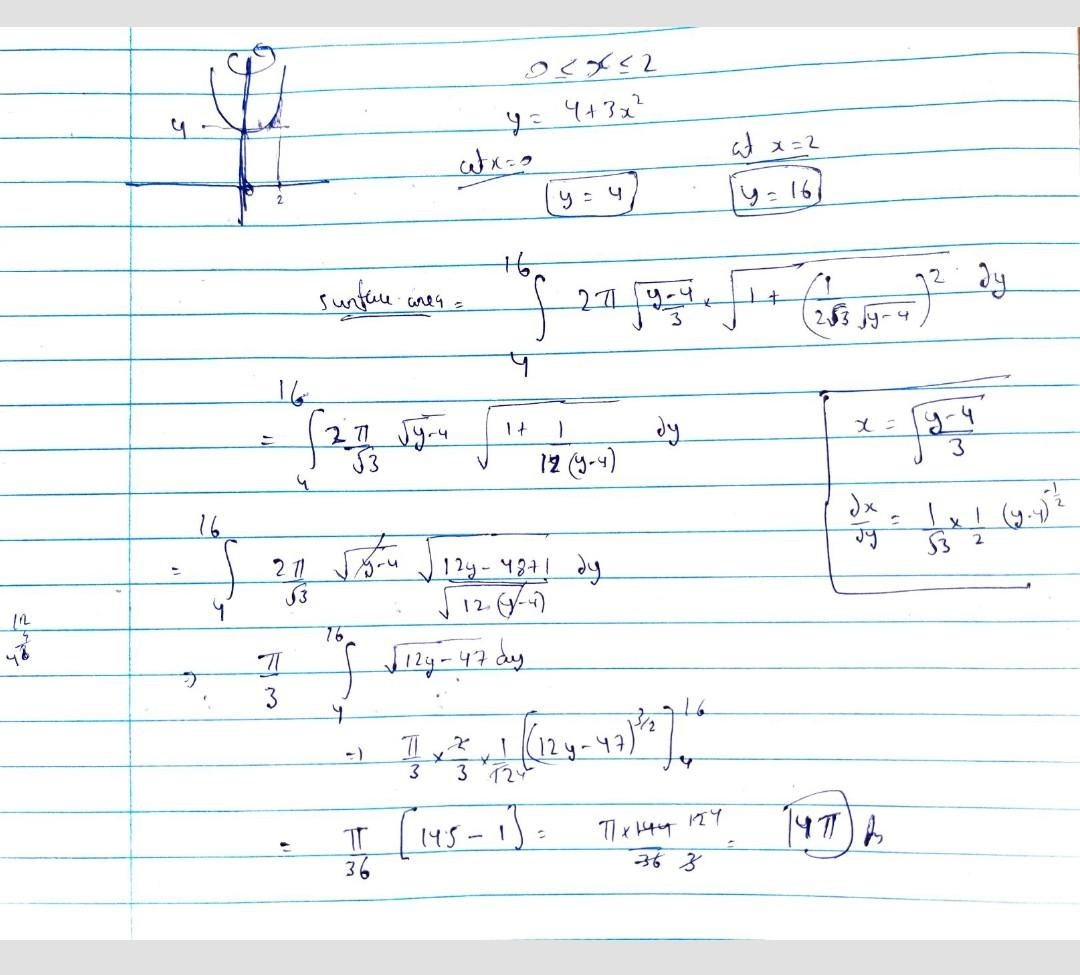 0 ≤ x ≤ 2
y = 4+3x²
4
2
at x=0
at x=2
y = 4
y = 16
surface area = ∫₄¹⁶ 2π √((y-4)/3) × √(1 + (1/(2√3 √(y-4)))²) dy
= ∫₄¹⁶ 2π/√3 √(y-4) √(1 + 1/(12(y-4))) dy
x = √((y-4)/3)
dx/dy = 1/√3 × 1/2 (y-4)^(-1/2)
= ∫₄¹⁶ 2π/√3 √(y-4) √(12y-48+1)/√(12(y-4)) dy
12
4
48
⇒ π/3 ∫₄¹⁶ √(12y-47) dy
⇒ π/3 × 2/3 × 1/12 [(12y-47)^(3/2)]₄¹⁶
= π/36 [145 - 1] = π×144/36 = 4π